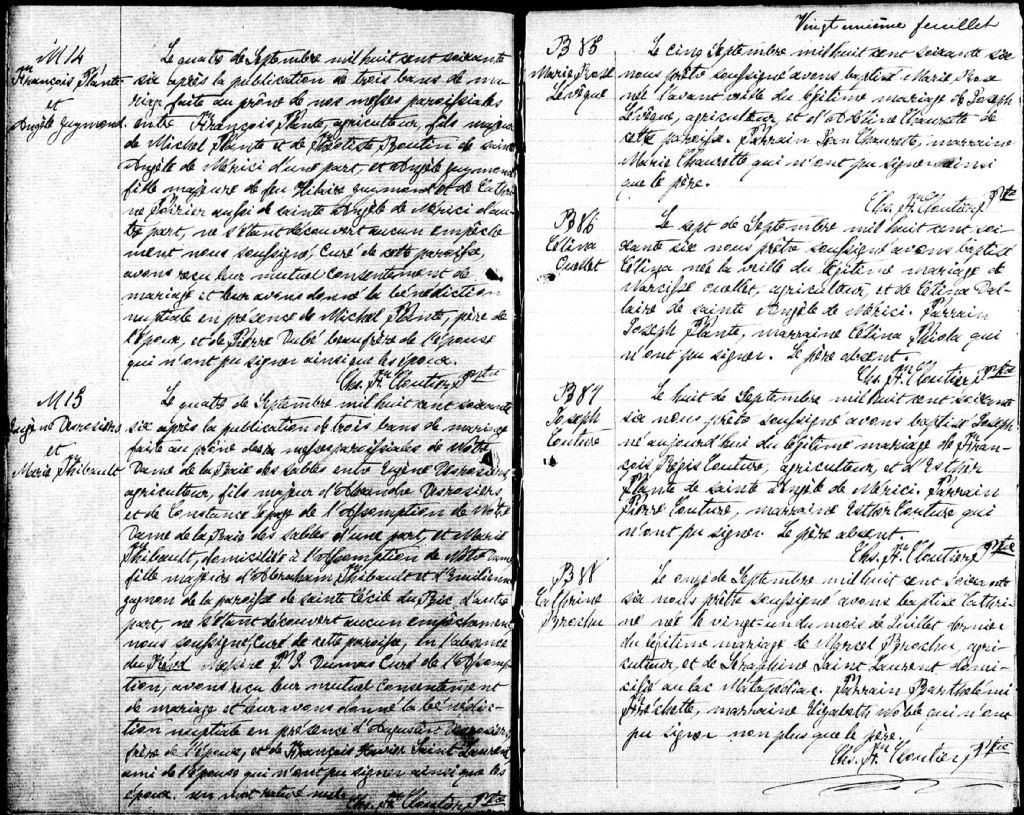 M 14
François Plante
et
Angèle Guymond
Le quatre de Septembre mil huit cent soixante
six après la publication de trois bans de ma-
riage faite au prône de nos messes paroissiales
entre François Plante, agriculteur, fils majeur
de Michel Plante et de Baptiste Boutin de sainte
Angèle de Mérici d'une part, et Angèle Guymond
fille majeure de feu Hilaire Guymond et de Cathri-
ne Poirier aussi de sainte Angèle de Mérici d'au-
tre part, ne s'étant découvert aucun empêche
ment nous soussigné, Curé de cette paroisse,
avons reçu leur mutuel consentement de
mariage et leur avons donné la bénédiction
nuptiale en présence de Michel Plante, père de
l'époux, et de Pierre Dubé beaufrère de l'épouse
qui n'ont pu signer ainsi que les époux.
Chs. F. Cloutier Ptre
M 15
Eugène Desrosiers
et
Marie Thibault
Le quatre de Septembre mil huit cent soixante
six après la publication de trois bans de mariage
faite au prône des messes paroissiales de Notre
Dame de la Baie des Sables entre Eugène Desrosiers,
agriculteur, fils majeur d'Alexandre Desrosiers
et de Constance Lepage de l'Assomption de Notre
Dame de la Baie des Sables d'une part, et Marie
Thibault, domiciliée à l'Assomption de Notre Dame
fille majeure d'Abraham Thibault et d'Emilienne
Gagnon de la paroisse de sainte Cécile du Bic d'autre
part, ne s'étant découvert aucun empêchement
nous soussigné, Curé de cette paroisse, en l'absence
du Révd Messire Dumas Curé de l'Assomp-
tion, avons reçu leur mutuel consentement
de mariage et leur avons donné la bénédic-
tion nuptiale en présence d'Augustin Desrosiers,
frère de l'époux, et de François Xavier Saint Laurent,
ami de l'épouse qui n'ont pu signer ainsi que les
époux. un mot raturé nul.
Chs. F. Cloutier Ptre
Vingt unième feuillet
B 85
Marie Rose
Levêque
Le cinq Septembre mil huit cent soixante six
nous prêtre soussigné avons baptisé Marie Rose
née l'avant veille du légitime mariage de Joseph
Lévêque, agriculteur, et d'Adeline Chaurette de
cette paroisse. Parrain Jean Chaurette, marraine
Marie Chaurette qui n'ont pu signer ainsi
que le père.
Chs. F. Cloutier Ptre
B 86
Célina
Ouellet
Le sept de Septembre mil huit cent soi-
xante six nous prêtre soussigné avons baptisé
Célina née la veille du légitime mariage de
Narcisse Ouellet, agriculteur, et de Célina Dal-
laire de sainte Angèle de Mérici. Parrain
Joseph Plante, marraine Célina Phiola qui
n'ont pu signer. Le père absent.
Chs. F. Cloutier Ptre
B 87
Joseph
Couture
Le huit de Septembre mil huit cent soixante
six nous prêtre soussigné avons baptisé Joseph
né aujourd'hui du légitime mariage de Fran-
çois Régis Couture, agriculteur, et d'Esther
Plante de sainte Angèle de Mérici. Parrain
Pierre Couture, marraine Esther Couture qui
n'ont pu signer. Le père absent.
Chs. F. Cloutier Ptre
B 88
Cathrine
Brochu
Le onze de Septembre mil huit cent soixante
six nous prêtre soussigné avons baptisé Cathri-
ne née le vingt-un du mois de Juillet dernier
du légitime mariage de Marcel Brochu, agri-
culteur, et de Séraphine Saint Laurent domi-
cilié au lac Matapédiac. Parrain Barthélémi
Fréchette, marraine Elizabeth Noble qui n'ont
pu signer non plus que le père.
Chs. F. Cloutier Ptre